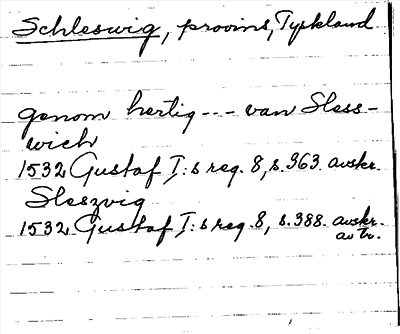 Schleswig, provins, Tyskland
genom hertig --- van Sless-
wich
1532 Gustaf I:s reg. 8, s. 363. avskr.
Sleszvig
1532 Gustaf I:s reg. 8, s. 388. avskr.
av tr.